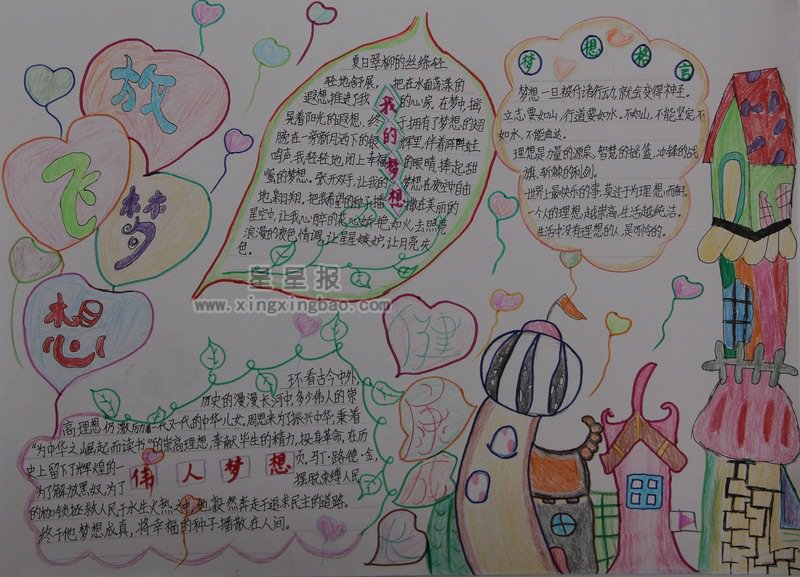 放
飞
梦
想
夏日翠柳的丝绦轻
轻地舒展,把在水面荡漾的
遐想,推进了我的心房。在梦中,摇
晃着阳光的遐想,终于拥有了梦想的翅
膀,在一旁新月洒下的银辉里,伴着阵阵蛙
鸣声,我轻轻地,闭上幸福的眼睛,捧起甜
蜜的梦想,张开双手,让我的梦想在夜空自由
地翱翔,把我希望的种子播撒在美丽的
星空中,让我心醉的花心娇艳如火,去照亮
浪漫的夜色情调,让星星嫉妒,让月亮失
色。
我的梦想
梦想格言
梦想一旦被付诸行动,就会变得神圣。
立志要如山,行道要如水。不如山,不能坚定,不
如水,不能曲达。
理想是力量的源泉、智慧的摇篮、冲锋的战
旗、斩棘的利剑。
世界上最快乐的事,莫过于为理想而斗。
一个人的理想越崇高,生活越纯洁。
生活中没有理想的人,是可怜的。
星星报
www.xingxingbao.com
环看古今中外,
历史的漫漫长河中,多少伟人的崇
高理想仍激励着一代又一代的中华儿女,周恩来为了振兴中华,秉着
“为中华之崛起而读书”的崇高理想,奉献毕生的精力,投身革命,在历
史上留下了辉煌的一页,马丁·路德·金,
为了解放黑奴,为了摆脱束缚人民
的枷锁,拯救人民于水生火热之中,他毅然奔走于追求民主的道路。
终于他梦想成真,将幸福的种子播散在人间。
伟人梦想